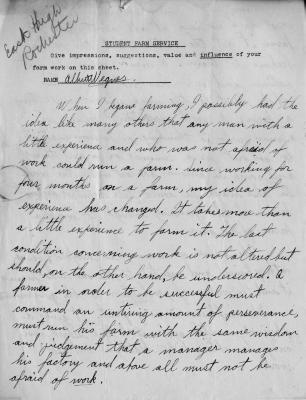 East High
Rochester
STUDENT FARM SERVICE
Give impressions, suggestions, value and influence of your
farm work on this sheet.
NAME Albert Vegors
When I began farming, I possibly had the
idea like many others that any man with a
little experience and who was not afraid of
work could run a farm. Since working for
four months on a farm, my idea of
experience has changed. It takes more than
a little experience to farm it. The last
condition concerning work is not altered but
should, on the other hand, be underscored. A
farmer in order to be successful must
command an untiring amount of perseverance,
must run his farm with the same wisdom
and judgement that a manager manages
his factory and above all must not be
afraid of work.